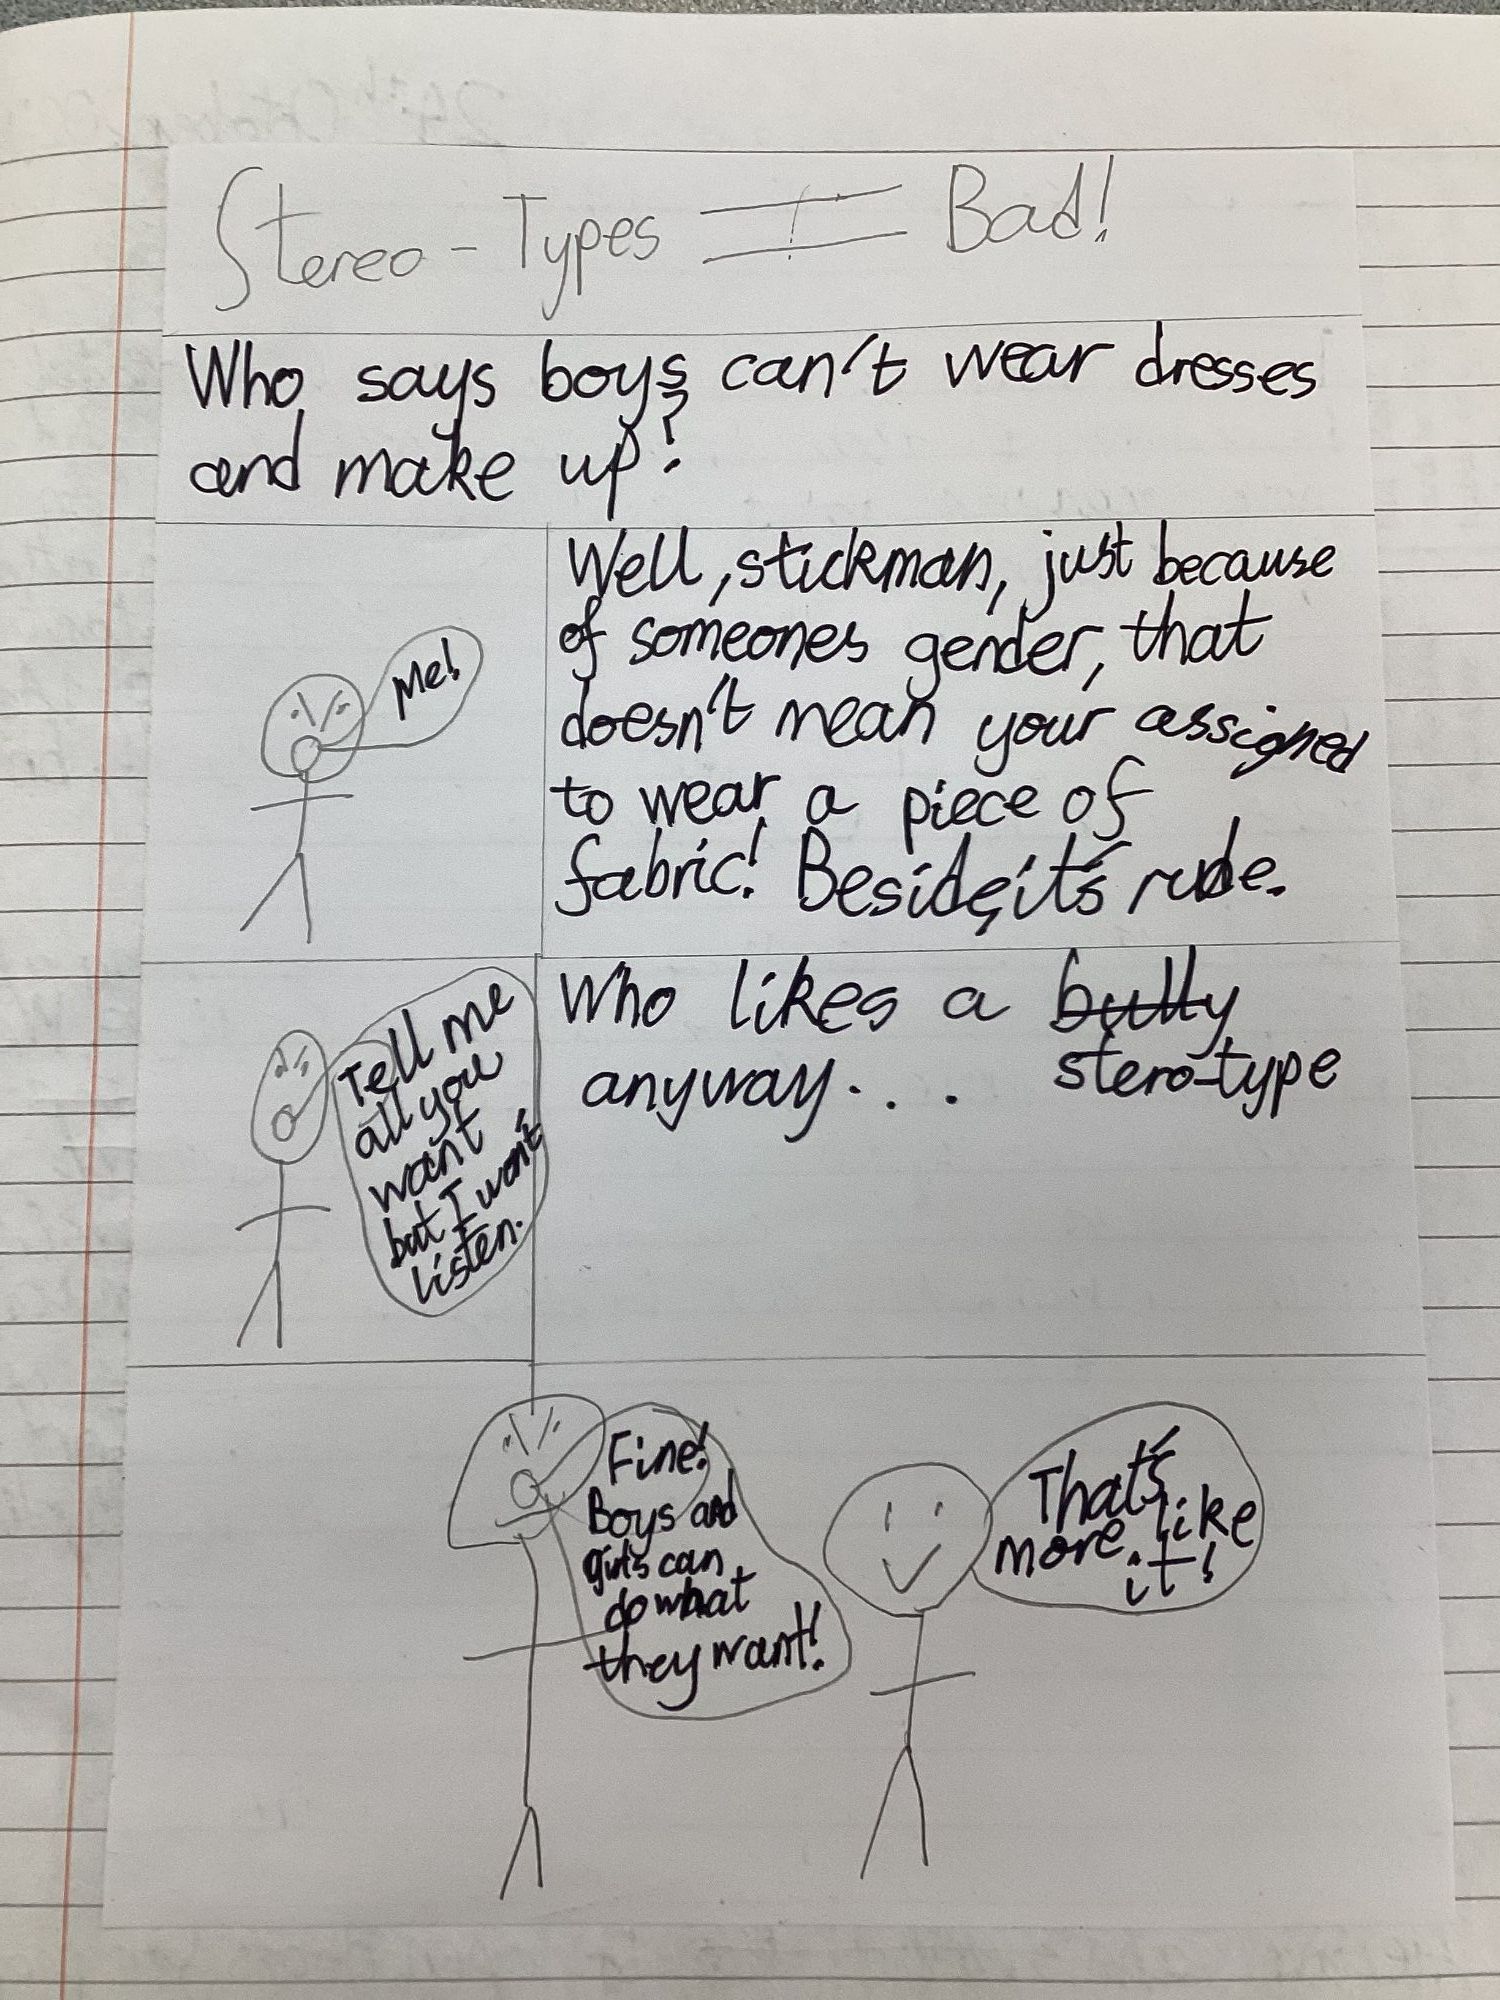 Stereo-Types = Bad!
Who says boys can't wear dresses
and make up?
Me!
Well, stickman, just because
of someones gender, that
doesn't mean your assigned
to wear a piece of
fabric! Beside, it's rude.
Tell me
all you
want
but I won't
listen.
Who likes a bully
stero-type
anyway...
Fine!
Boys and
girls can
do what
they want!
That's
more like
it!